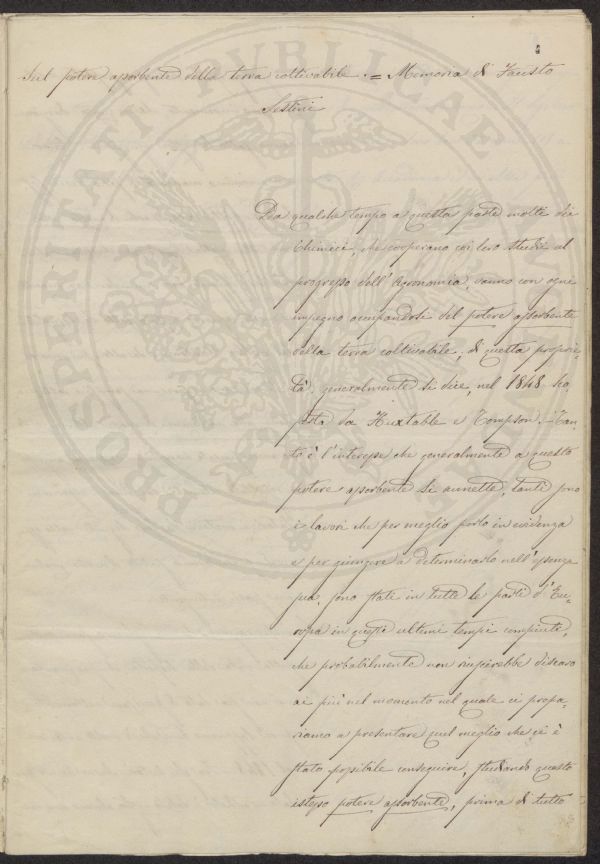 4
Sul potere assorbente della terra coltivabile. = Memoria di Fausto
Sestini
Da qualche tempo a questa parte molti dei
Chimici, che cooperano coi loro studii al
progresso dell'Agronomia, vanno con ogni
impegno occupandosi del potere assorbente
della terra coltivabile, di questa proprie-
tà, generalmente si dice, nel 1848 sco-
perta da Huxtable e Tompson. Tan-
to è l'interesse che generalmente a questo
potere assorbente si annette, tanti sono
i lavori che per meglio porlo in evidenza
e per giungere a determinarlo nell'essenza
sua, sono state in tutte le parti d'Eu-
ropa in questi ultimi tempi compiuti,
che probabilmente non riuscirebbe discaro
ai più nel momento nel quale ci prepa-
riamo a presentare quel meglio che ci è
stato possibile conseguire, studiando questo
istesso potere assorbente, prima di tutto
PROSPERITATI PUBLICAE